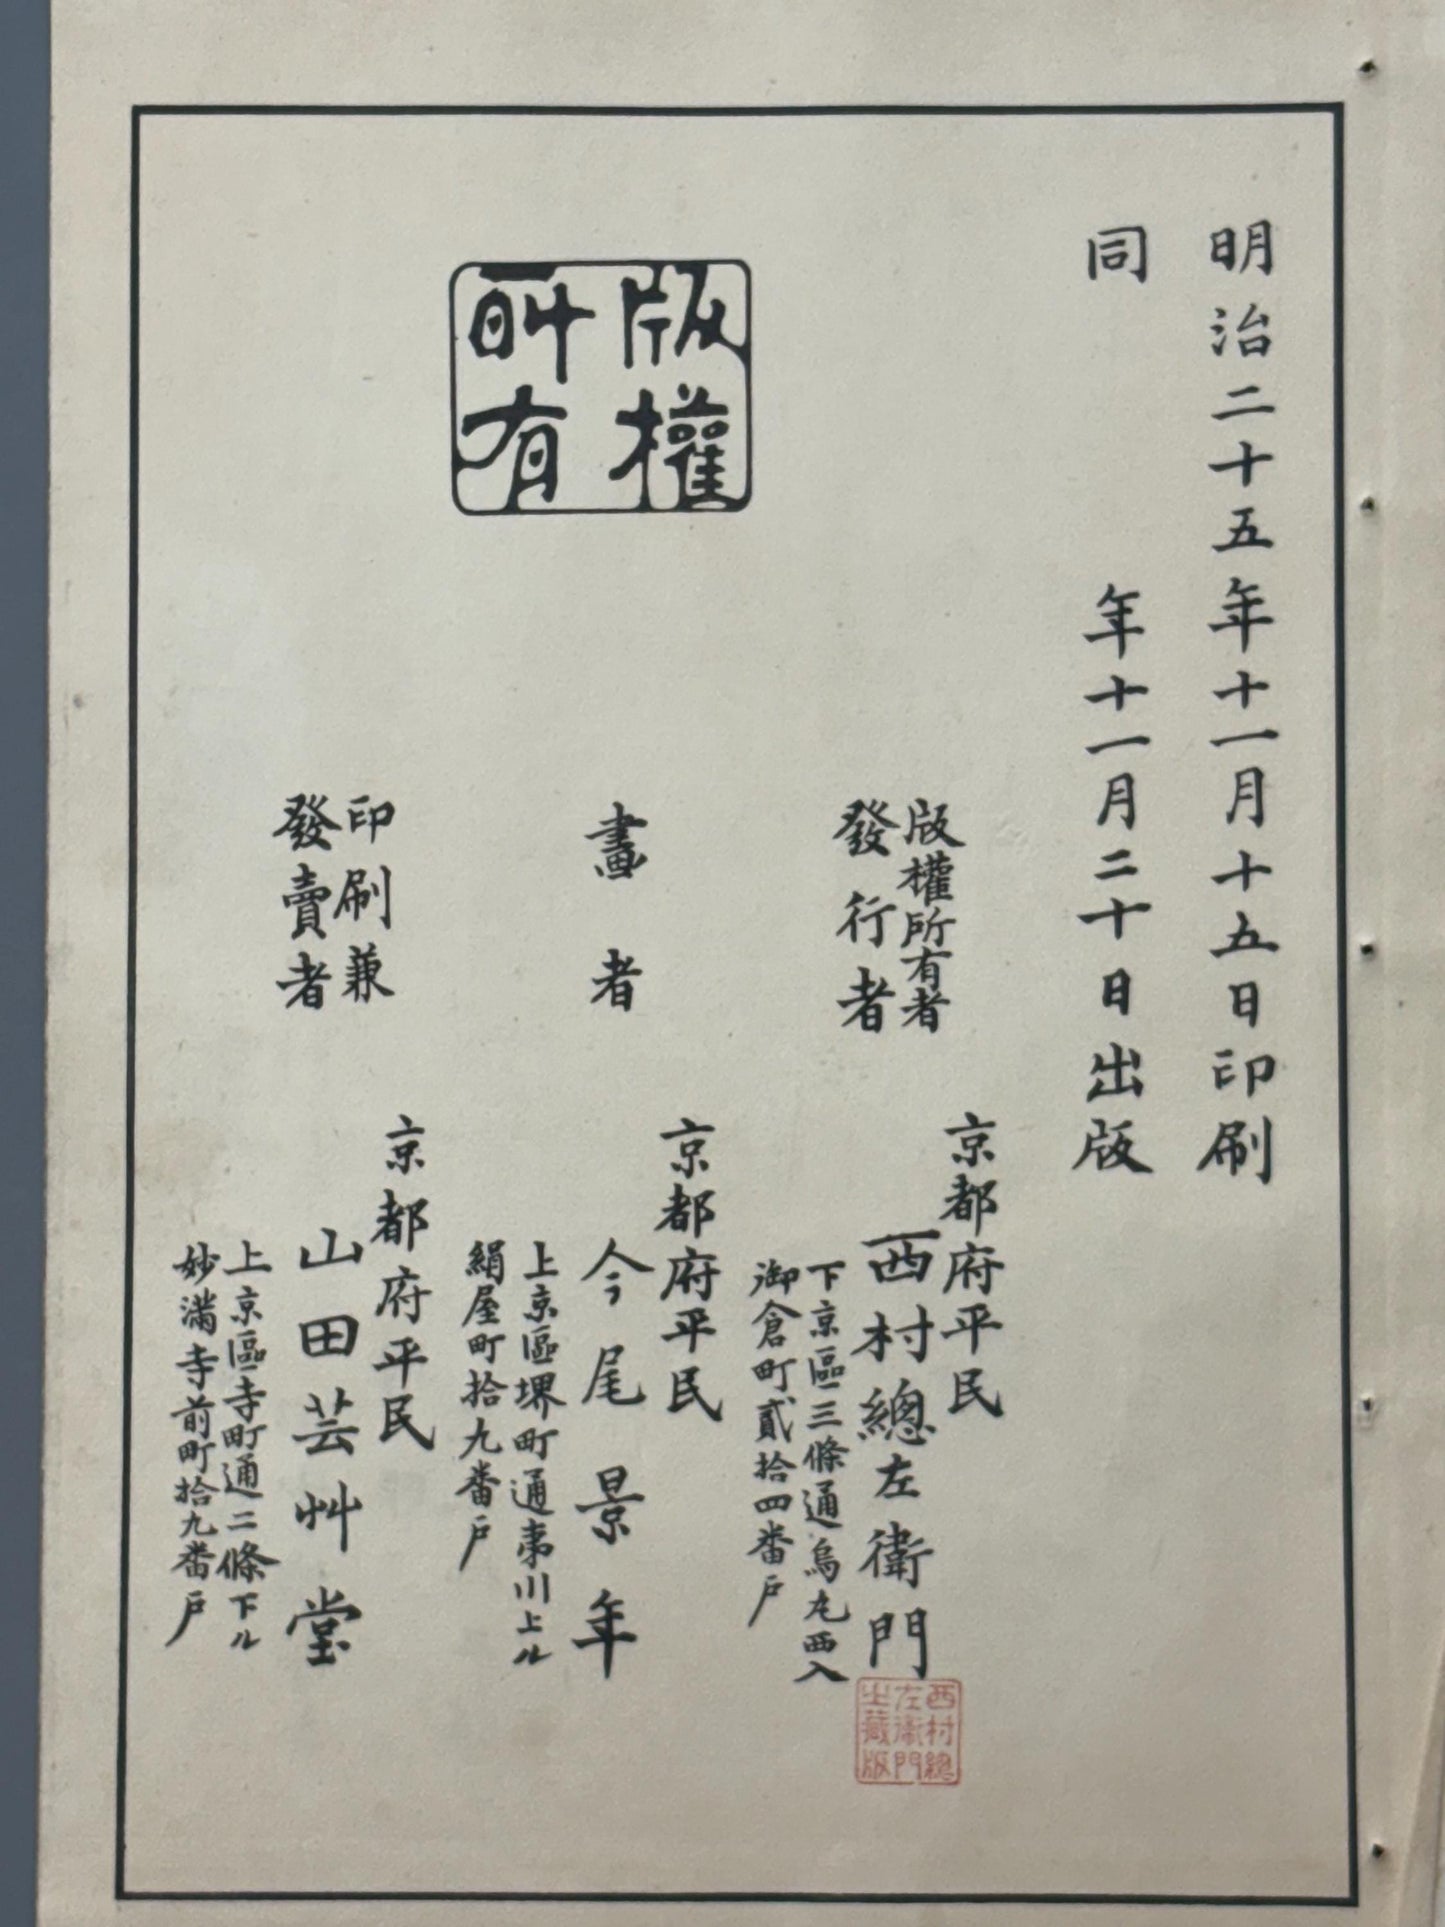 明治二十五年十一月十五日印刷
同年十一月二十日出版
版權所有者
發行者
京都府平民
西村總左衛門
下京區三條通烏丸西入
御倉町貳拾四番戸
西村總
左衛門
之藏版
畫者
京都府平民
今尾景年
上京區堺町通夷川上ル
絹屋町拾九番戸
版權
所有
印刷兼
發賣者
京都府平民
山田芸艸堂
上京區寺町通二條下ル
妙滿寺前町拾九番戸